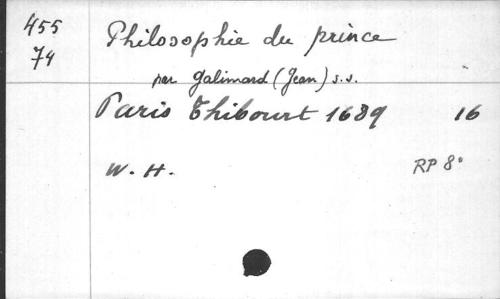 455
74
Philosophie du prince
par Galimard (Jean) s.j.
Paris Thiboust 1689 16
W. H. RP 8°